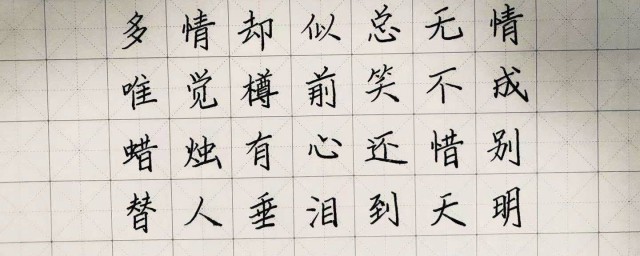 多情却似总无情
唯觉樽前笑不成
蜡烛有心还惜别
替人垂泪到天明